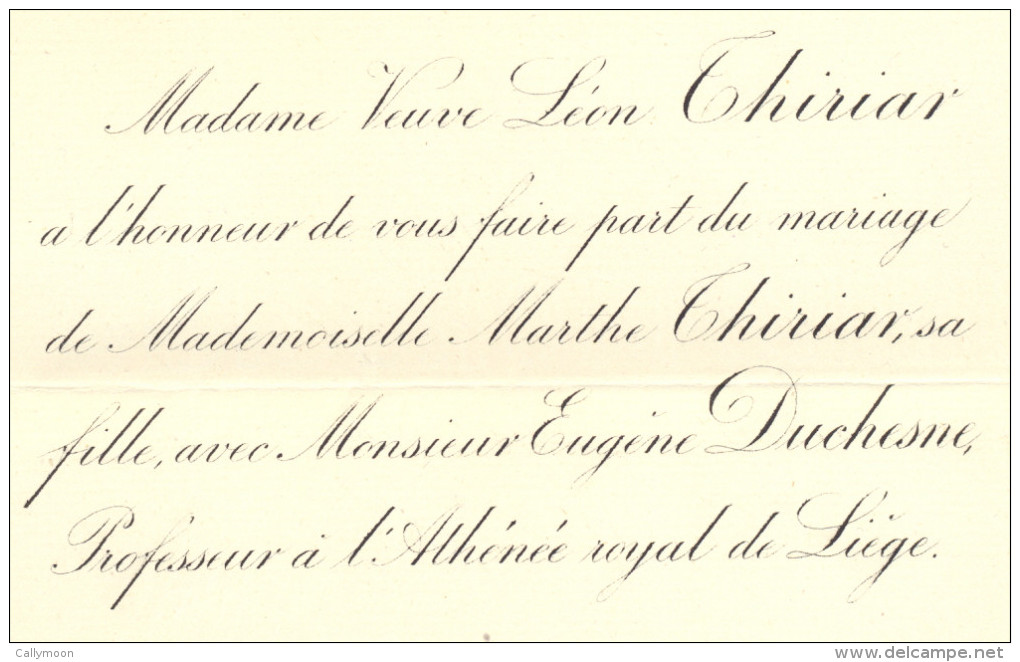 Madame Veuve Léon Thiriar
a l'honneur de vous faire part du mariage
de Mademoiselle Marthe Thiriar, sa
fille, avec Monsieur Eugène Duchesne,
Professeur à l'Athénée royal de Liége.
Callymoon
www.delcampe.net